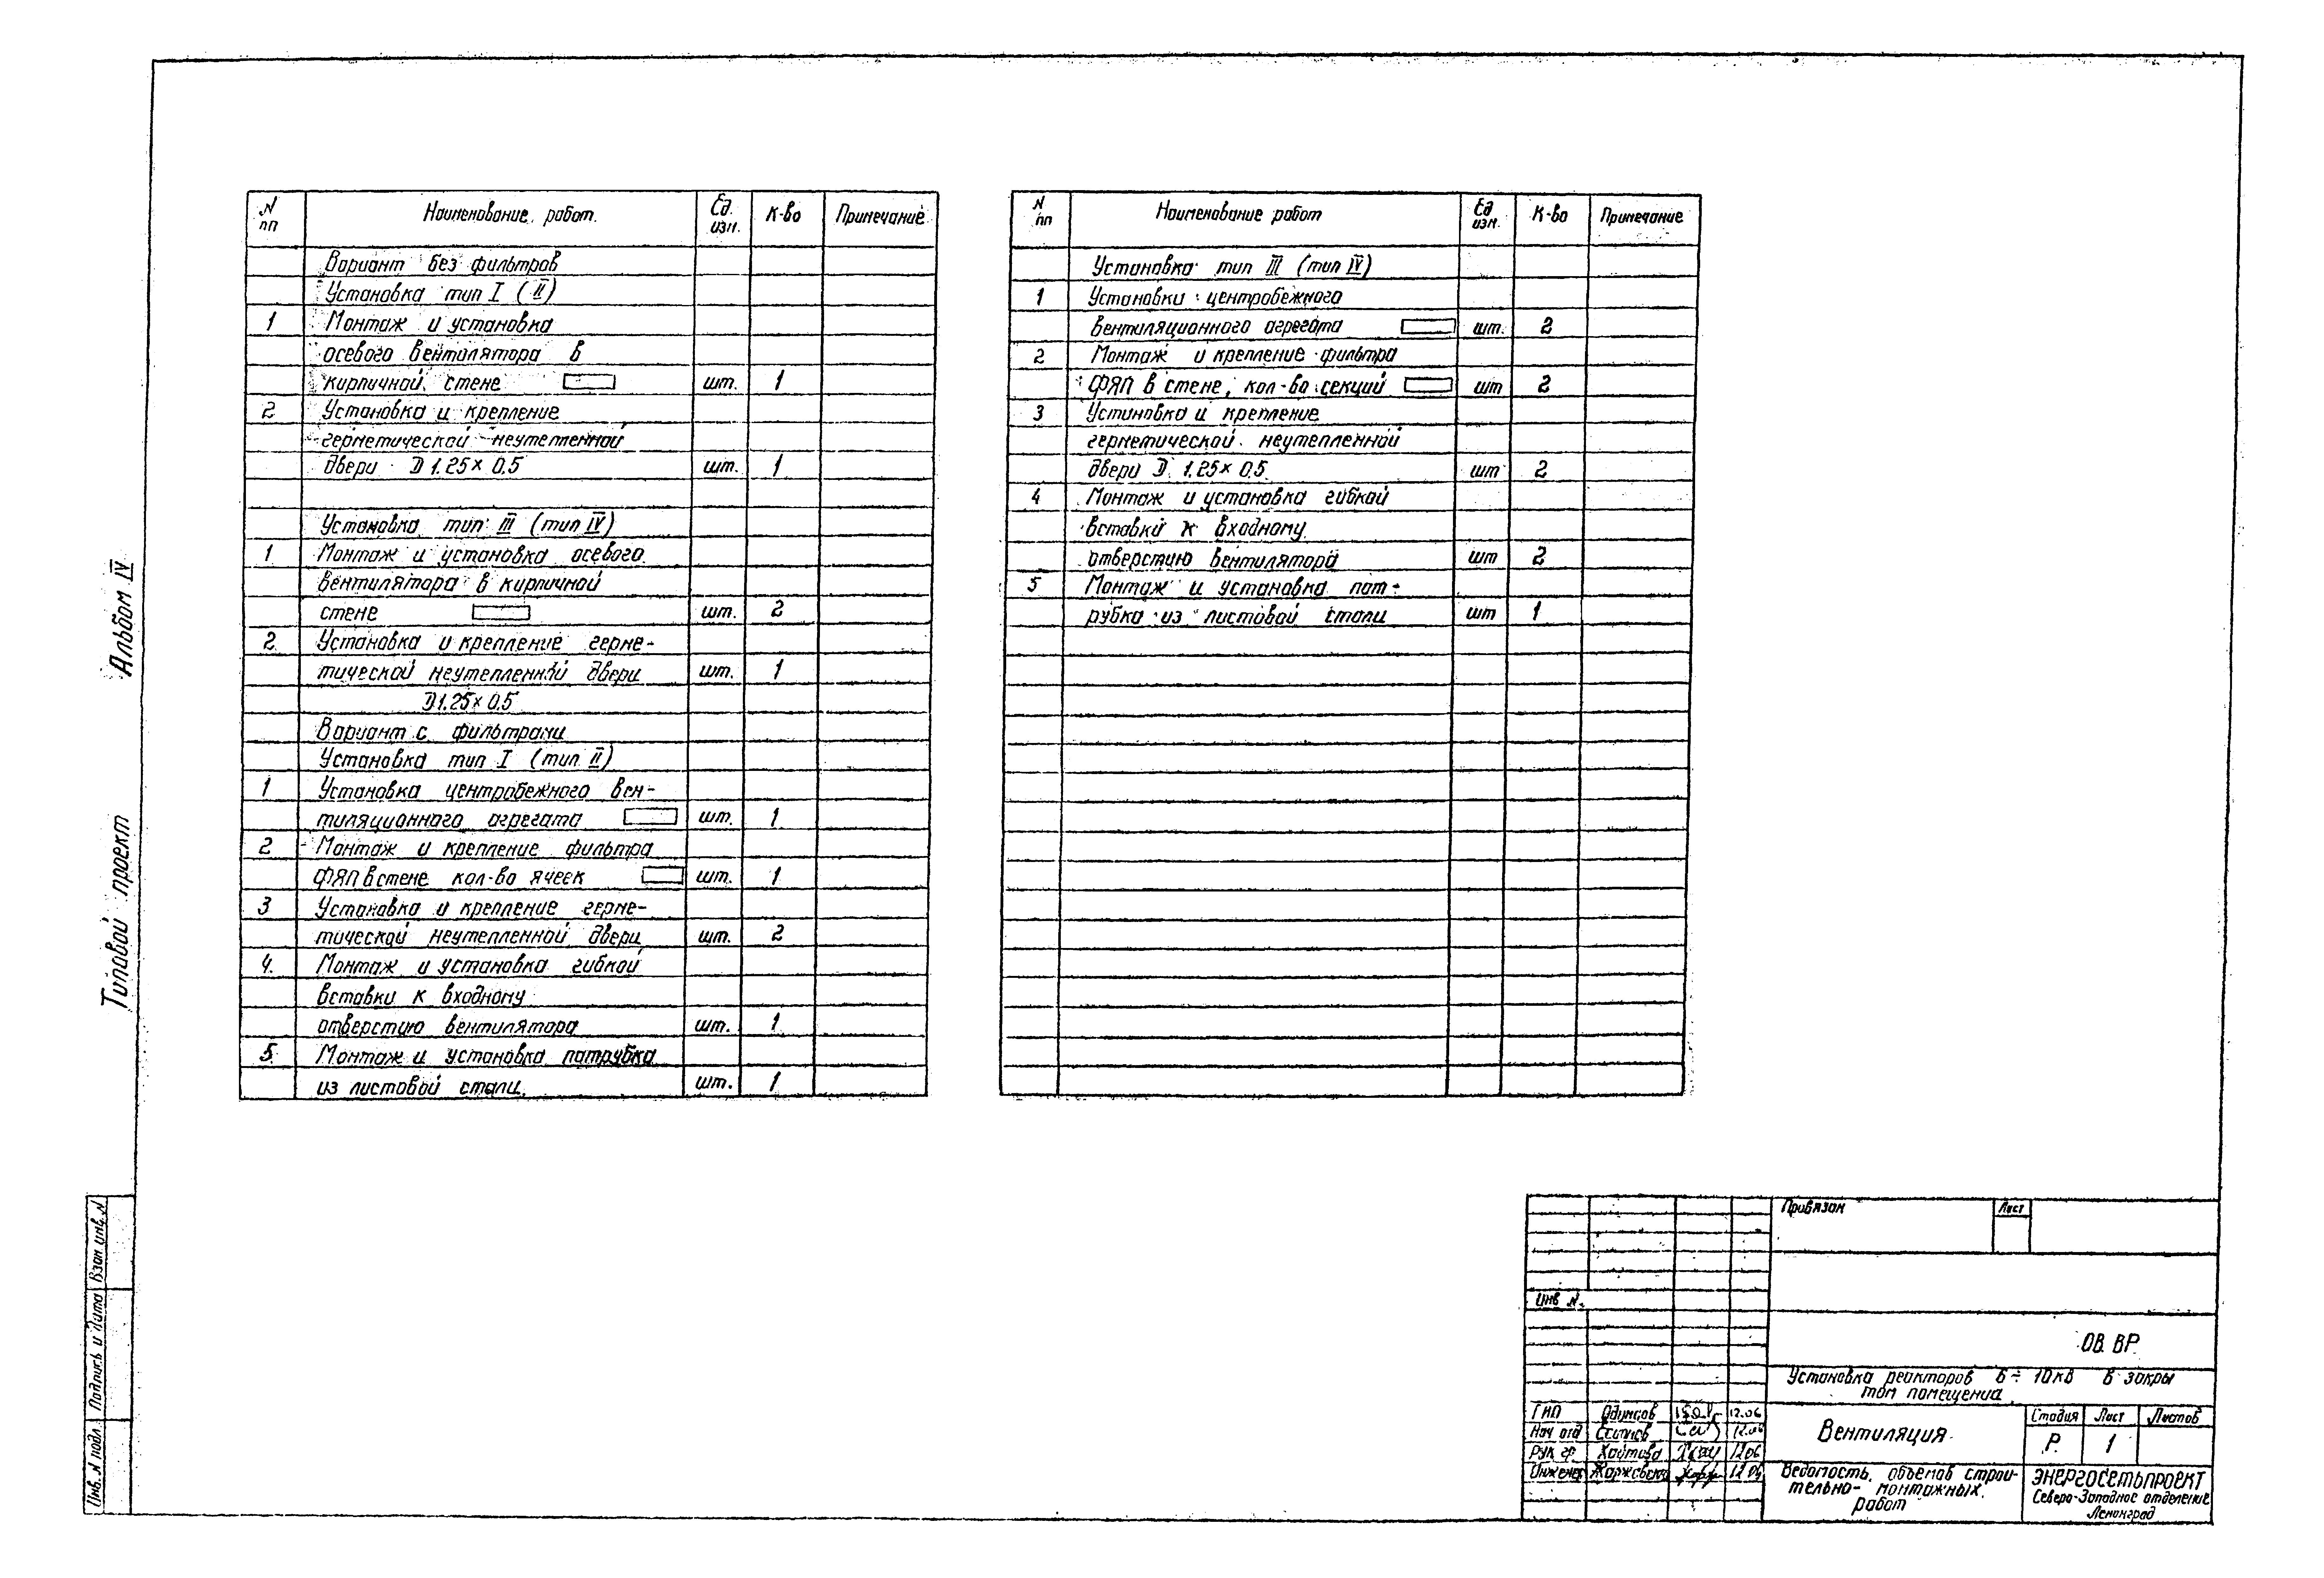 Альбом IV
Типовой проект
N пп
Наименование работ.
Ед. изм.
К-во
Примечание
Вариант без фильтров
Установка тип I (II)
1 Монтаж и установка
осевого вентилятора в
кирпичной стене шт. 1
2 Установка и крепление
герметической неутепленной
двери D 1.25×0,5 шт. 1
Установка тип III (тип IV)
1 Монтаж и установка осевого
вентилятора в кирпичной
стене шт. 2
2. Установка и крепление герме-
тической неутепленной двери шт. 1
D 1.25×0,5
Вариант с фильтрами
Установка тип I (тип II)
1 Установка центробежного вен-
тиляционного агрегата шт. 1
2 Монтаж и крепление фильтра
ФЯП в стене кол-во ячеек шт. 1
3 Установка и крепление герме-
тической неутепленной двери шт. 2
4. Монтаж и установка гибкой
вставки к входному
отверстию вентилятора шт. 1
5. Монтаж и установка патрубка
из листовой стали. шт. 1
N пп
Наименование работ
Ед изм.
К-во
Примечание
Установка тип III (тип IV)
1 Установки центробежного
вентиляционного агрегата шт. 2
2 Монтаж и крепление фильтра
ФЯП в стене, кол-во секций шт 2
3 Установка и крепление
герметической неутепленной
двери D 1.25×0,5 шт 2
4 Монтаж и установка гибкой
вставки к входному
отверстию вентилятора шт 2
5 Монтаж и установка пат-
рубка из листовой стали шт 1
Инв. N подл. Подпись и дата Взам инв. N
Привязан
Лист
Инв N.
ОВ. ВР.
Установка реакторов 6÷10кВ в закры
том помещении
ГИП Одинцов 12.06
Нач отд 12.06
Рук гр. 12.06
Инженер 12.06
Вентиляция
Стадия Лист Листов
Р. 1
Ведомость объемов строи-
тельно-монтажных
работ
ЭНЕРГОСЕТЬПРОЕКТ
Северо-Западное отделение
Ленинград